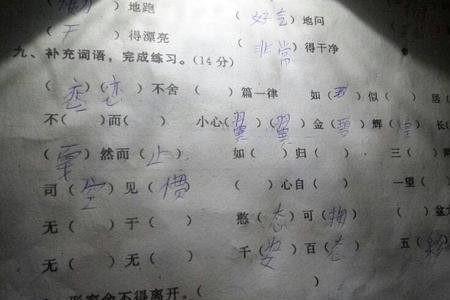 ( ) 地跑 ( 好奇 ) 地问
( ) 得漂亮 ( 非常 ) 得干净
九、补充词语,完成练习。(14分)
( ) ( ) 不舍 ( ) 篇一律 如 ( ) 似 ( ) 居(
不( ) 而( ) 小心( 翼 )( 翼 ) 金( ) 辉( ) 长(
( ) 然而 ( 止 ) 如 ( ) 归 ( ) 三 (
司 ( 空 ) 见 ( 惯 ) ( ) 心自 ( ) 一望 (
无 ( ) 于 ( ) 憨 ( 态 ) 可 ( 掬 ) ( ) 盆
无 ( ) 无 ( ) 千 ( 姿 ) 百 ( 态 ) 五 (
)
形容舍不得离开。(